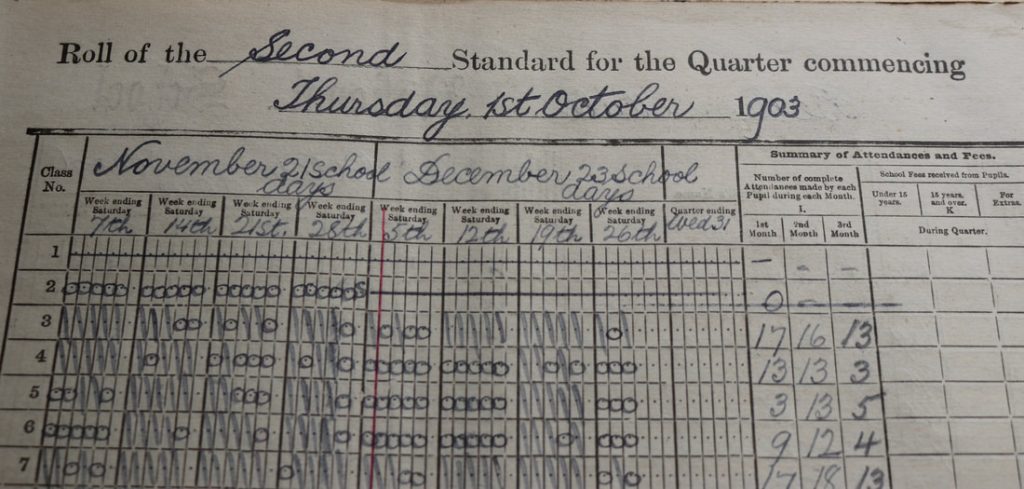 Roll of the Second Standard for the Quarter commencing
Thursday, 1st October 1903
Class No.
November 21 School days
December 23 School days
Summary of Attendances and Fees.
Number of complete Attendances made by each Pupil during each Month.
I.
School Fees received from Pupils.
Under 15 years.
15 years, and over. K
For Extras.
Week ending Saturday 7th
Week ending Saturday 14th
Week ending Saturday 21st.
Week ending Saturday 28th
Week ending Saturday 5th
Week ending Saturday 12th
Week ending Saturday 19th
Week ending Saturday 26th
Quarter ending Wed 31
1st Month
2nd Month
3rd Month
During Quarter.
1 – – –
2 ooooo ooooo ooooo oooooS 0 – –
3 17 16 13
4 13 13 3
5 3 13 5
6 9 12 4
7 17 18 13